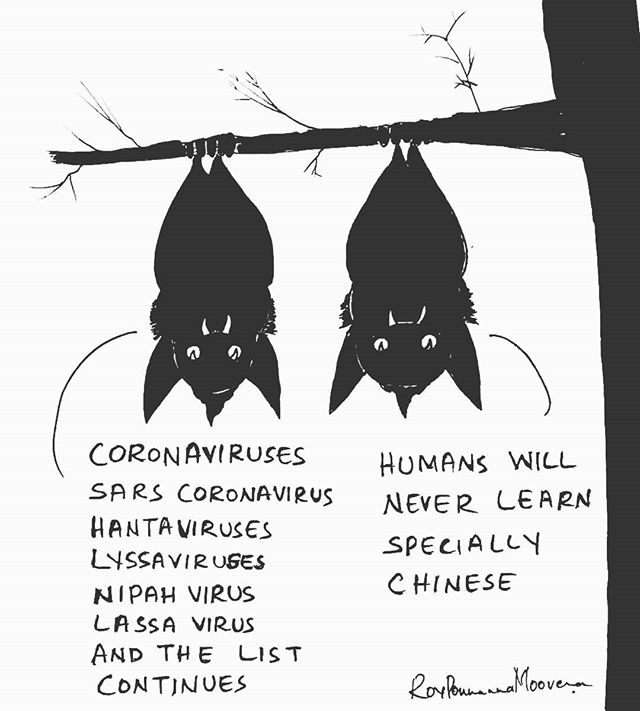 CORONAVIRUSES
SARS CORONAVIRUS
HANTAVIRUSES
LYSSAVIRUSES
NIPAH VIRUS
LASSA VIRUS
AND THE LIST
CONTINUES
HUMANS WILL
NEVER LEARN
SPECIALLY
CHINESE